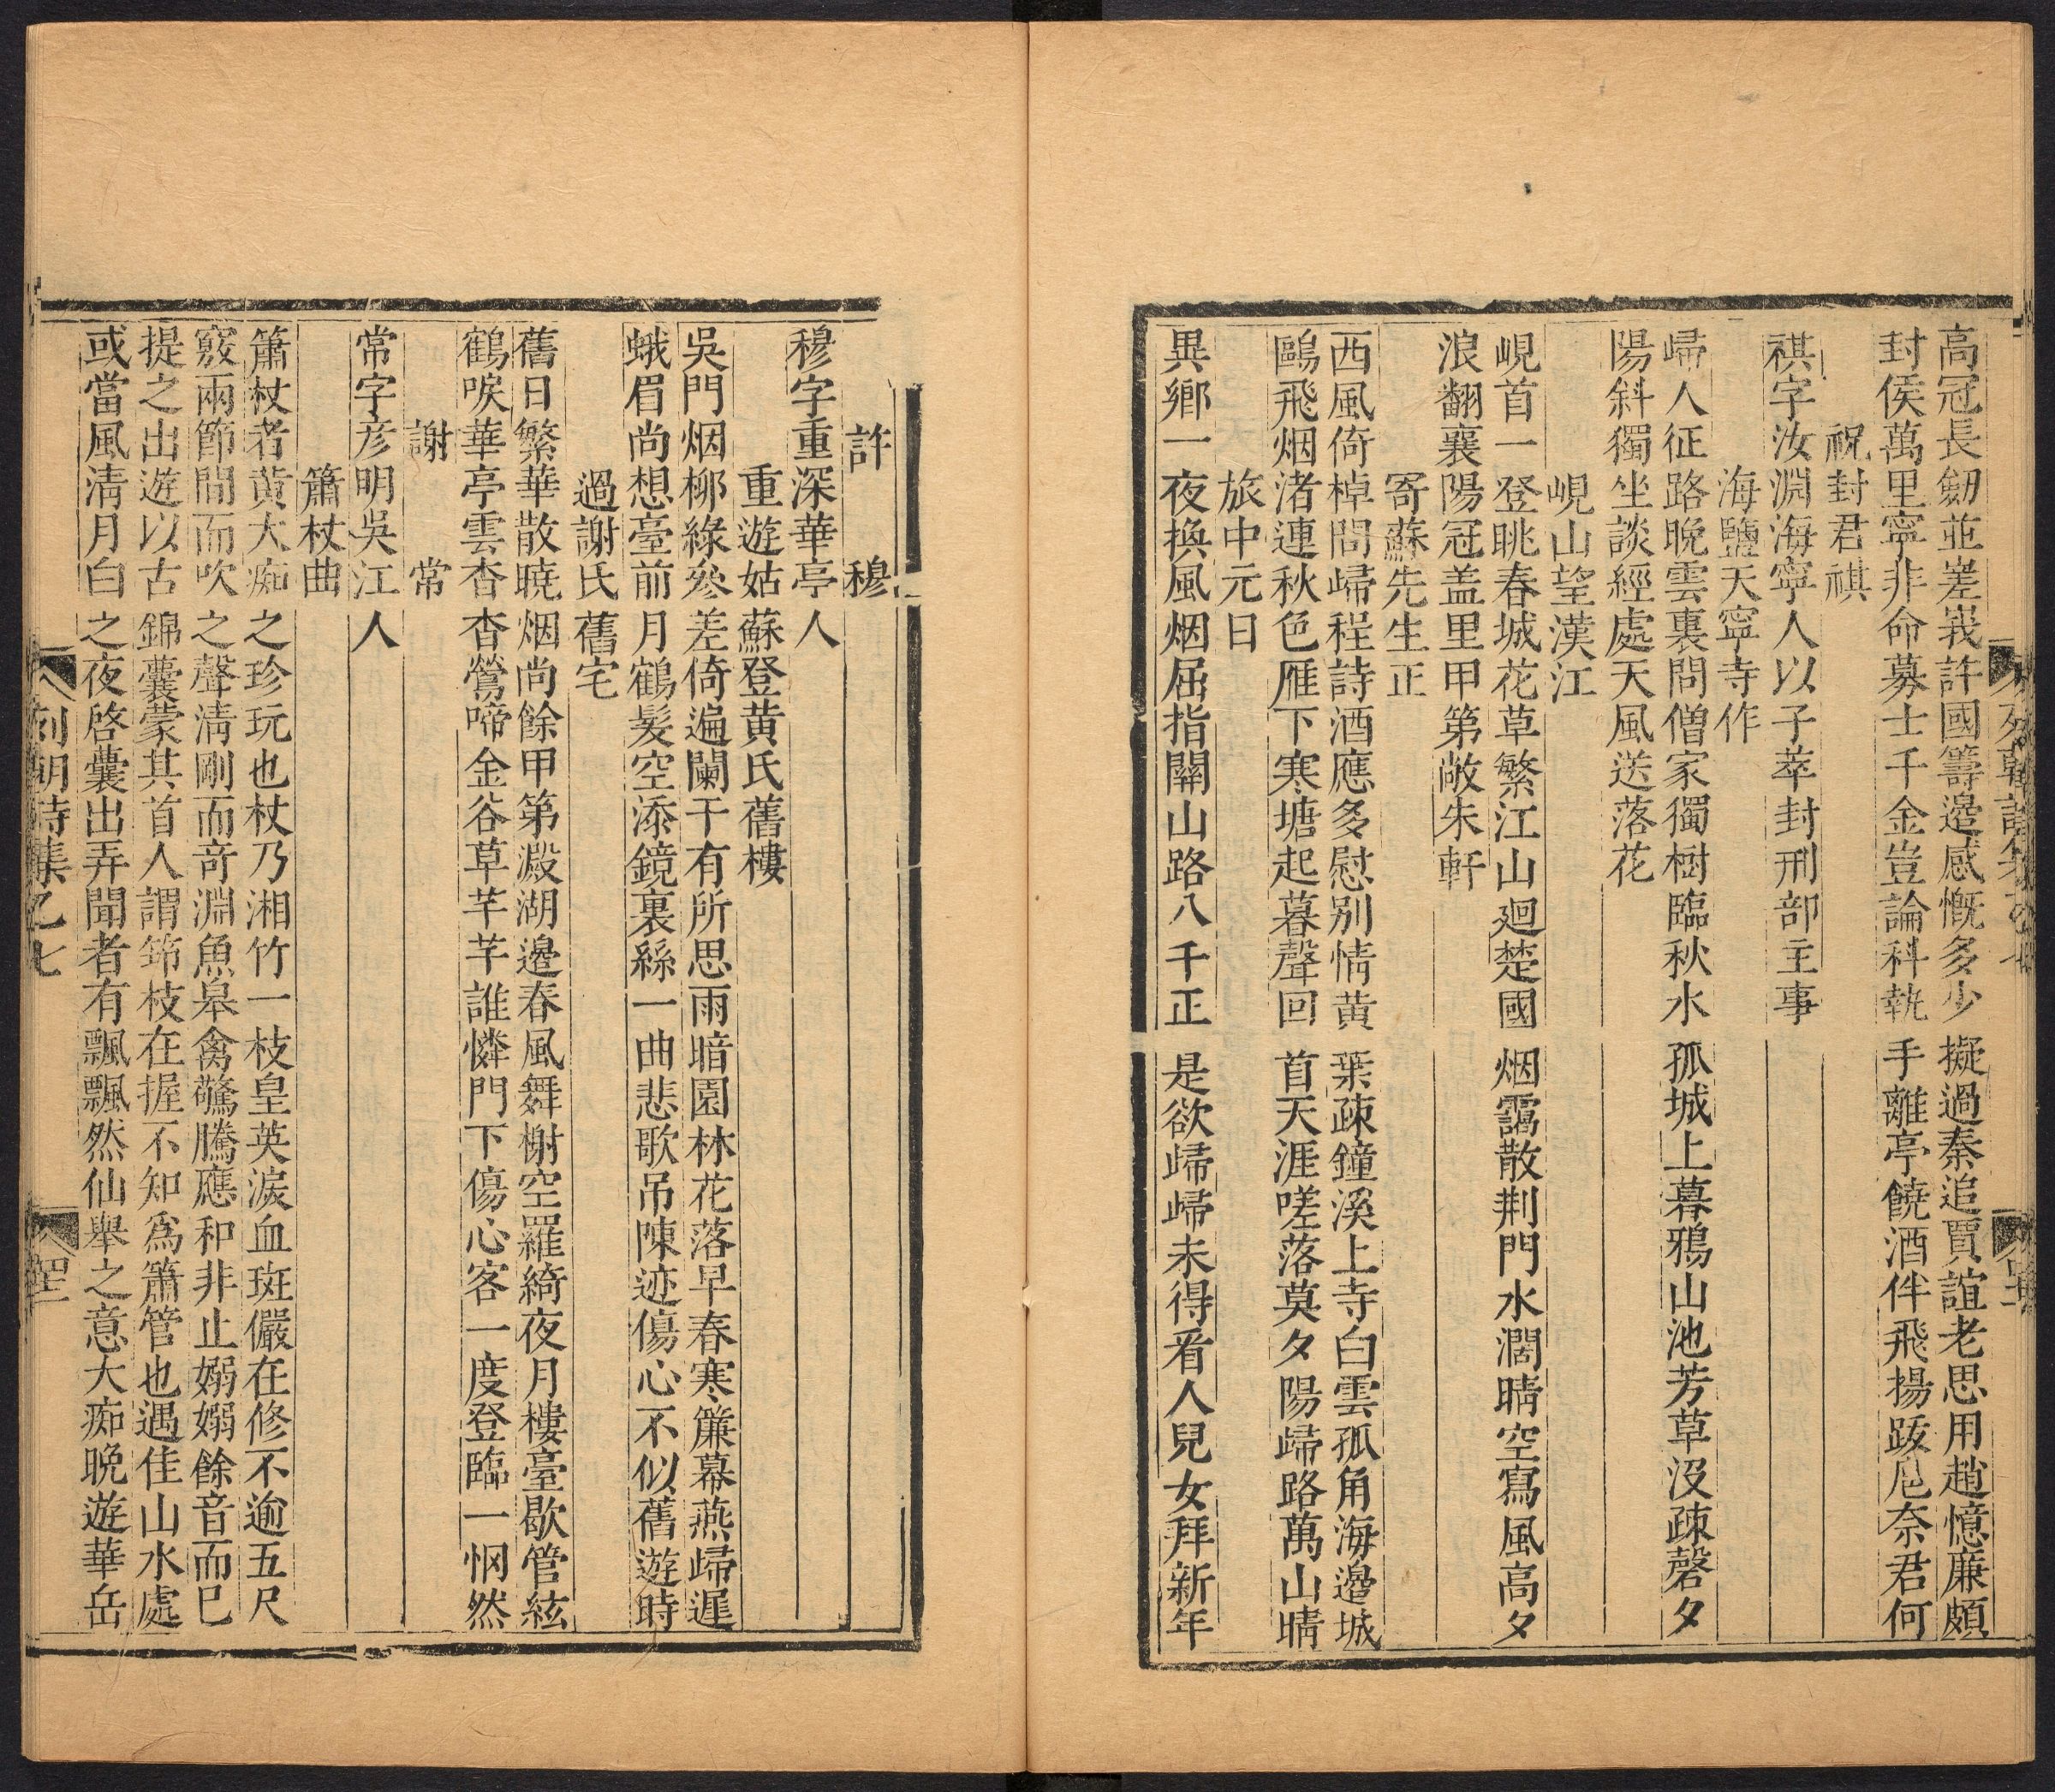 高冠長劒並嵳峩許國籌邉感慨多少擬過秦追賈誼老思用趙憶廉頗
封侯萬里寧非命募士千金豈論科執手離亭饒酒伴飛揚跋扈奈君何
祝封君祺
祺字汝淵海寧人以子萃封刑部主事
海鹽天寧寺作
歸人征路晚雲裏問僧家獨樹臨秋水孤城上暮鴉山池芳草沒疎磬夕
陽斜獨坐談經處天風送落花
峴山望漢江
峴首一登眺春城花草繁江山廻楚國烟靄散荆門水濶晴空寫風高夕
浪翻襄陽冠盖里甲第敞朱軒
寄蘇先生正
西風倚棹問歸程詩酒應多慰别情黄葉疎鐘溪上寺白雲孤角海邉城
鷗飛烟渚連秋色雁下寒塘起暮聲回首天涯嗟落莫夕陽歸路萬山晴
旅中元日
異鄉一夜換風烟屈指關山路八千正是欲歸歸未得看人兒女拜新年
許穆
穆字重深華亭人
重遊姑蘇登黄氏舊樓
吳門烟柳綠參差倚遍闌干有所思雨暗園林花落早春寒簾幕燕歸遲
蛾眉尚想臺前月鶴髮空添鏡裏絲一曲悲歌吊陳迹傷心不似舊遊時
過謝氏舊宅
舊日繁華散曉烟尚餘甲第澱湖邉春風舞榭空羅綺夜月樓臺歇管絃
鶴唳華亭雲杳杳鶯啼金谷草芊芊誰憐門下傷心客一度登臨一惘然
謝常
常字彦明吳江人
簫杖曲
簫杖者黄大痴之珍玩也杖乃湘竹一枝皇英淚血斑儼在修不逾五尺
竅兩節間而吹之聲淸剛而竒淵魚皋禽驚騰應和非止嫋嫋餘音而已
提之出遊以古錦囊蒙其首人謂筇枝在握不知爲簫管也遇佳山水處
或當風淸月白之夜啓囊出弄聞者有飄飄然仙舉之意大痴晚遊華岳
列朝詩集乙七